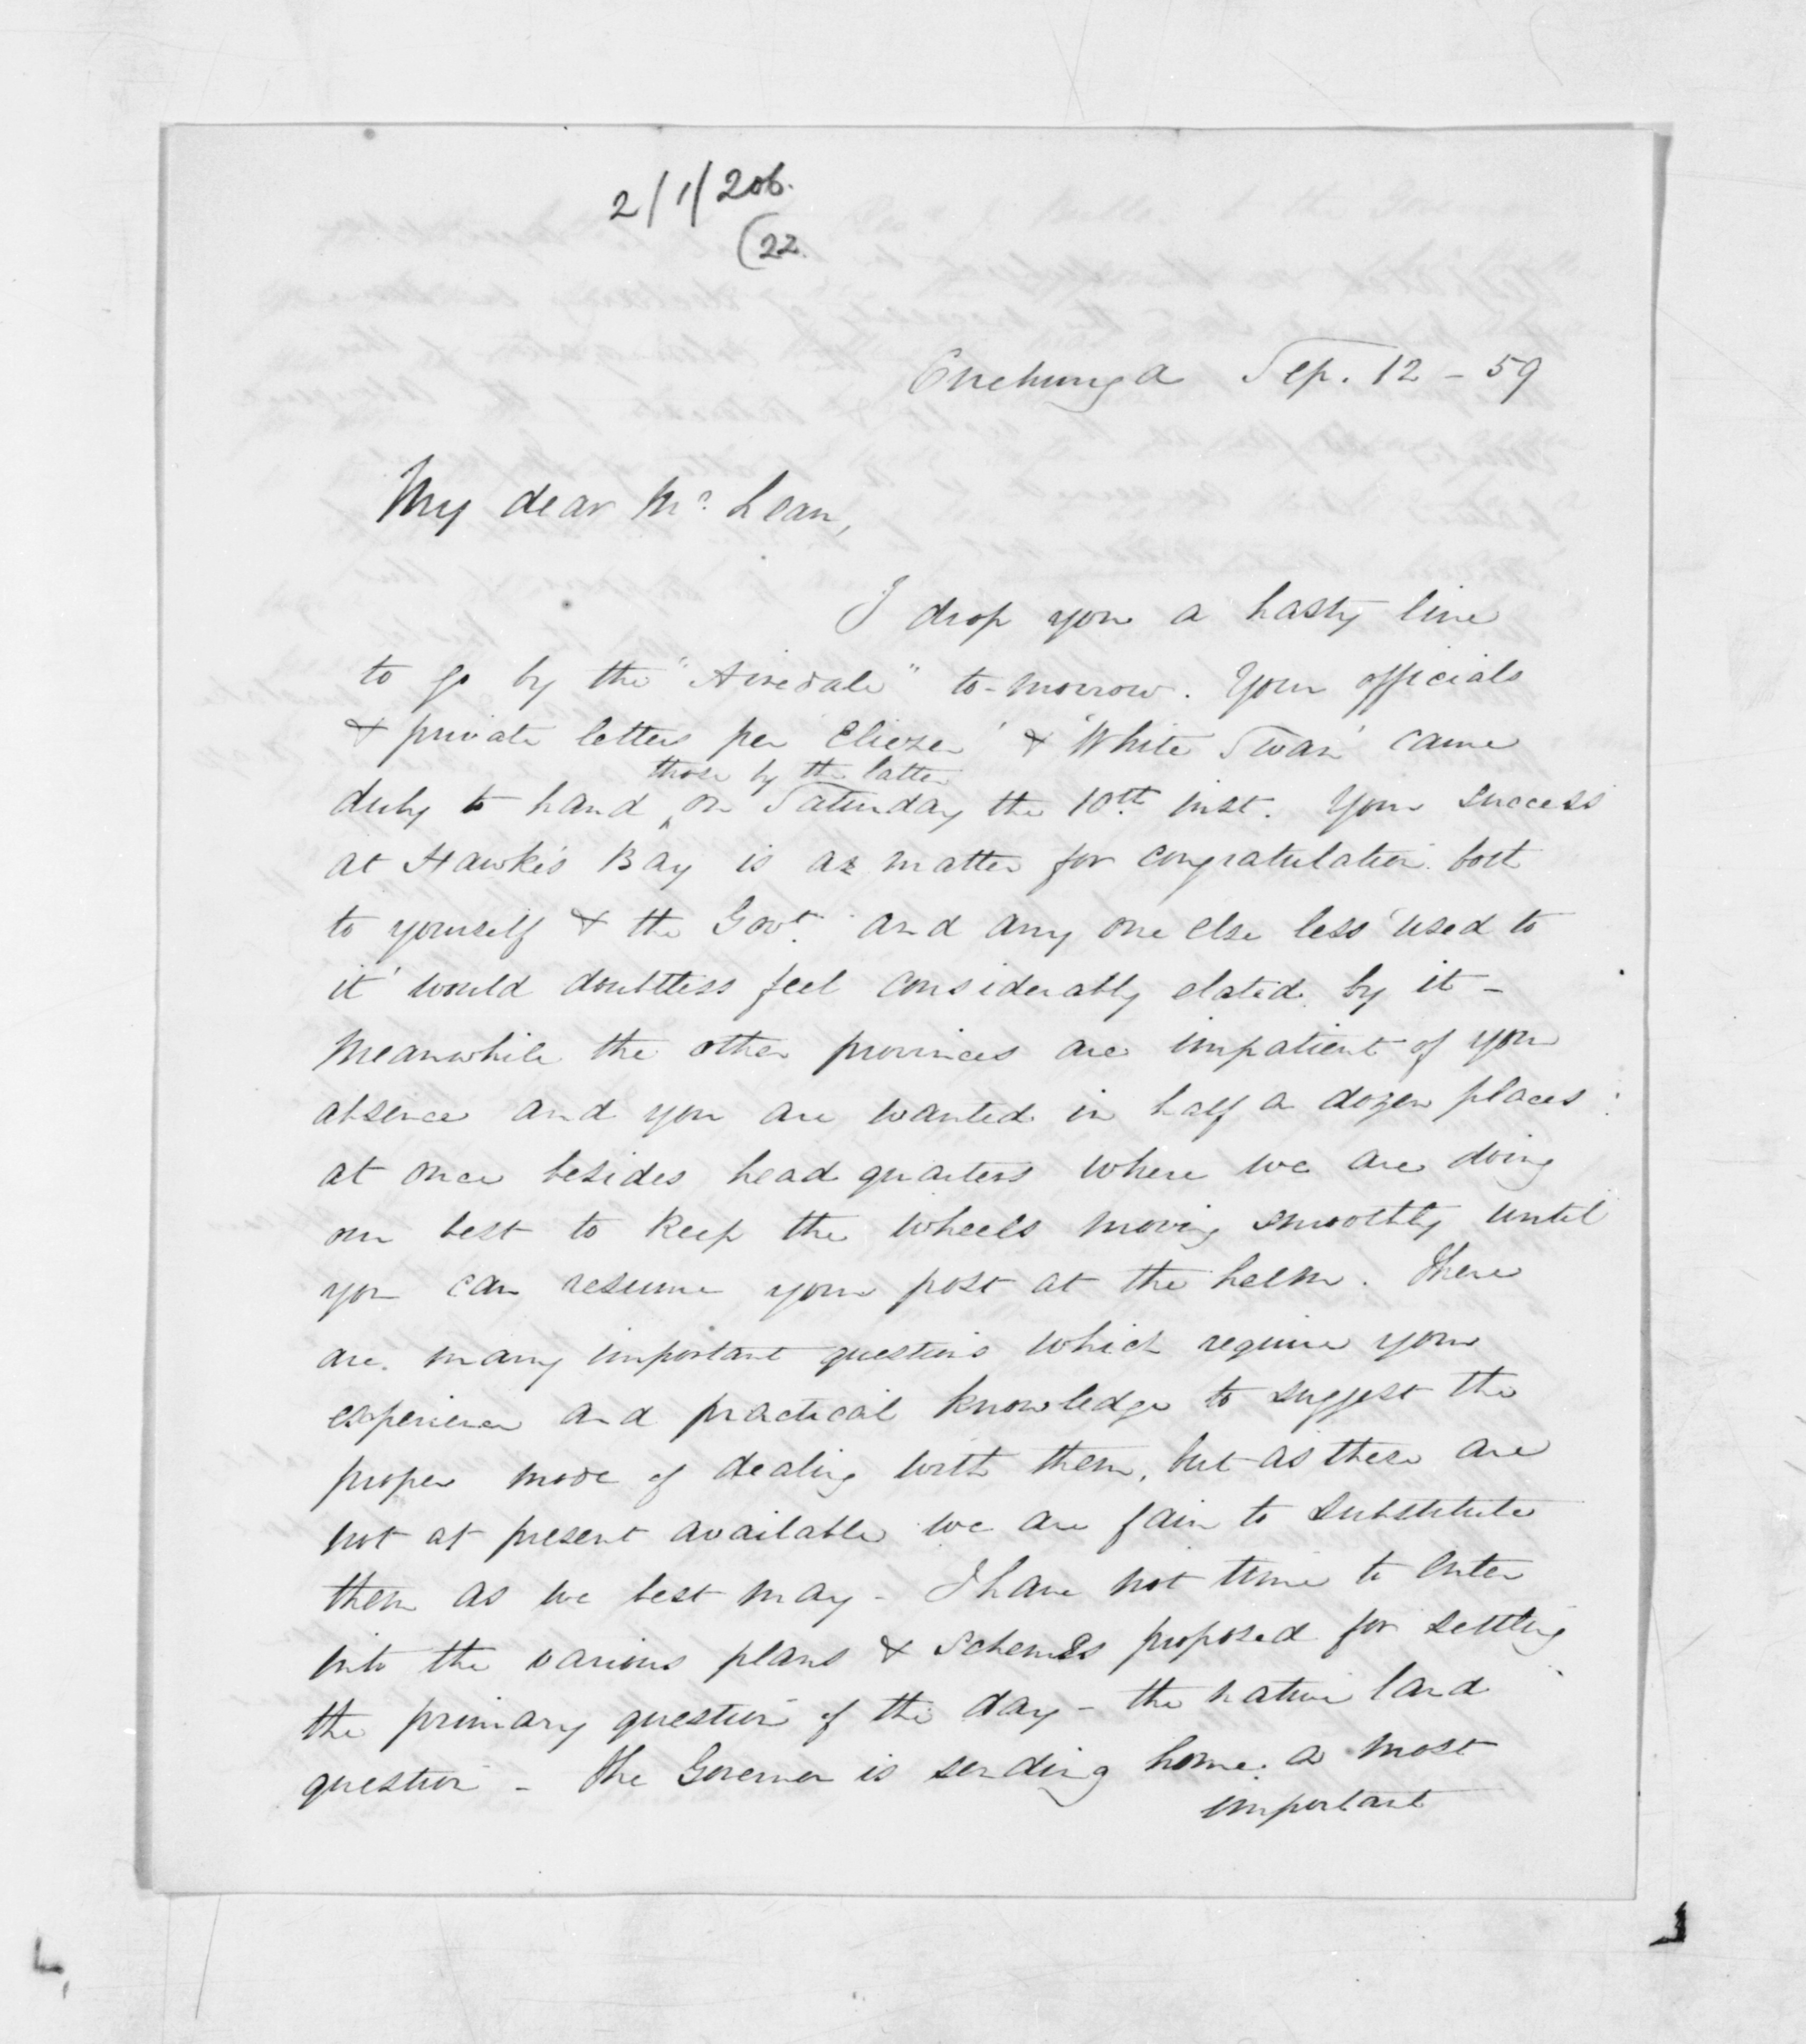 2/1/206.
(22.
Onehunga Sep. 12 - 59
My dear Mc. Lean,
I drop you a hasty line
to go by the "Airedale" to-morrow. Your officials
& private letters per 'Eliezer' & 'White Swan' came
those by the latter
duly to hand on Saturday the 10th. inst. Your success
at Hawke's Bay is a matter for congratulation both
to yourself & the Govt. and any one else less 'used to
it' would doubtless feel considerably elated by it -
Meanwhile the other provinces are impatient of your
absence and you are wanted in half a dozen places
at once besides head quarters where we are doing
our best to keep the wheels moving smoothly until
you can resume your post at the helm. There
are many important questions which require your
experience and practical knowledge to suggest the
proper mode of dealing with them, but as these are
not at present available we are fain to substitute
them as we best may - I have not time to enter
into the various plans & schemes proposed for settling
the primary question of the day - the native land
question - The Governor is sending home a most
important